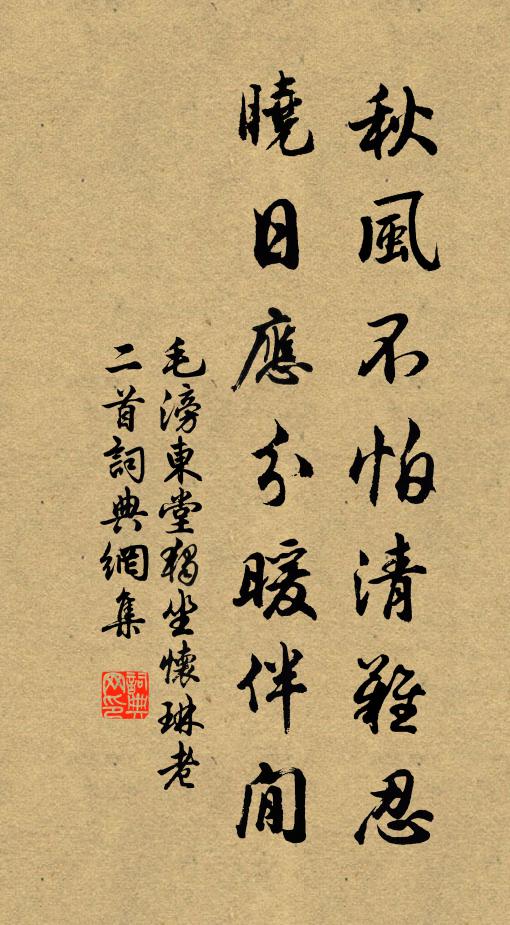 秋風不怕清難忍
曉日應分暖伴閒
毛滂東堂獨坐懷琳老
二首詞典網集
詞典網印